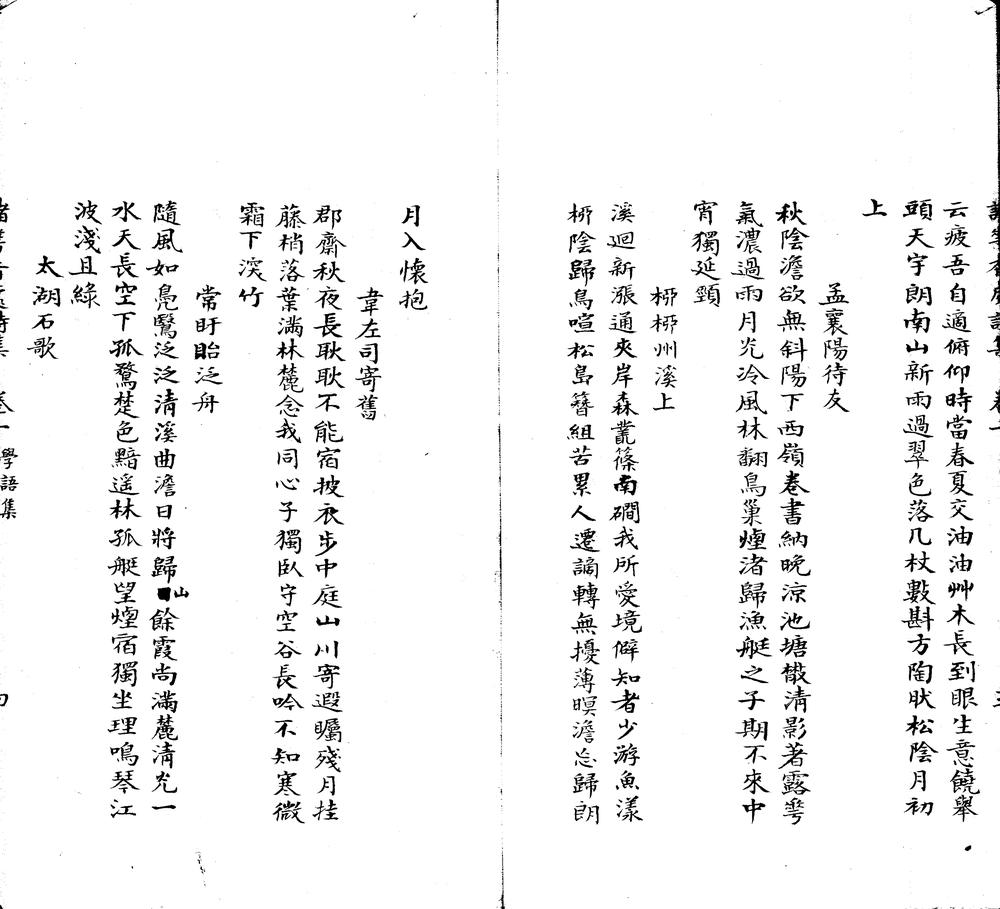 云疲吾自適俯仰時當春夏交油油艸木長到眼生意饒舉
頭天宇朗南山新雨過翠色落几杖數斟方陶肰松陰月初
上
孟襄陽待友
秋陰澹欲無斜陽下西嶺卷書納晚涼池塘散清影著露雩
氣濃過雨月光冷風林翻鳥巢煙渚歸漁艇之子期不來中
宵獨延頸
桺桺州溪上
溪迴新漲通夾岸森叢篠南磵我所愛境僻知者少游魚漾
桺陰歸鳥喧松島簪組苦累人遷謫轉無擾薄暝澹忘歸朗
月入懷抱
韋左司寄舊
郡齋秋夜長耿耿不能宿披衣步中庭山川寄遐矚殘月挂
藤梢落葉滿林麓念我同心子獨臥守空谷長吟不知寒微
霜下深竹
常盱眙泛舟
隨風如鳧鷖泛泛清溪曲澹日將歸山餘霞尚滿麓清光一
水天長空下孤鶩楚色黯遥林孤艇望煙宿獨坐理鳴琴江
波淺且綠
太湖石歌
卷一 學語集